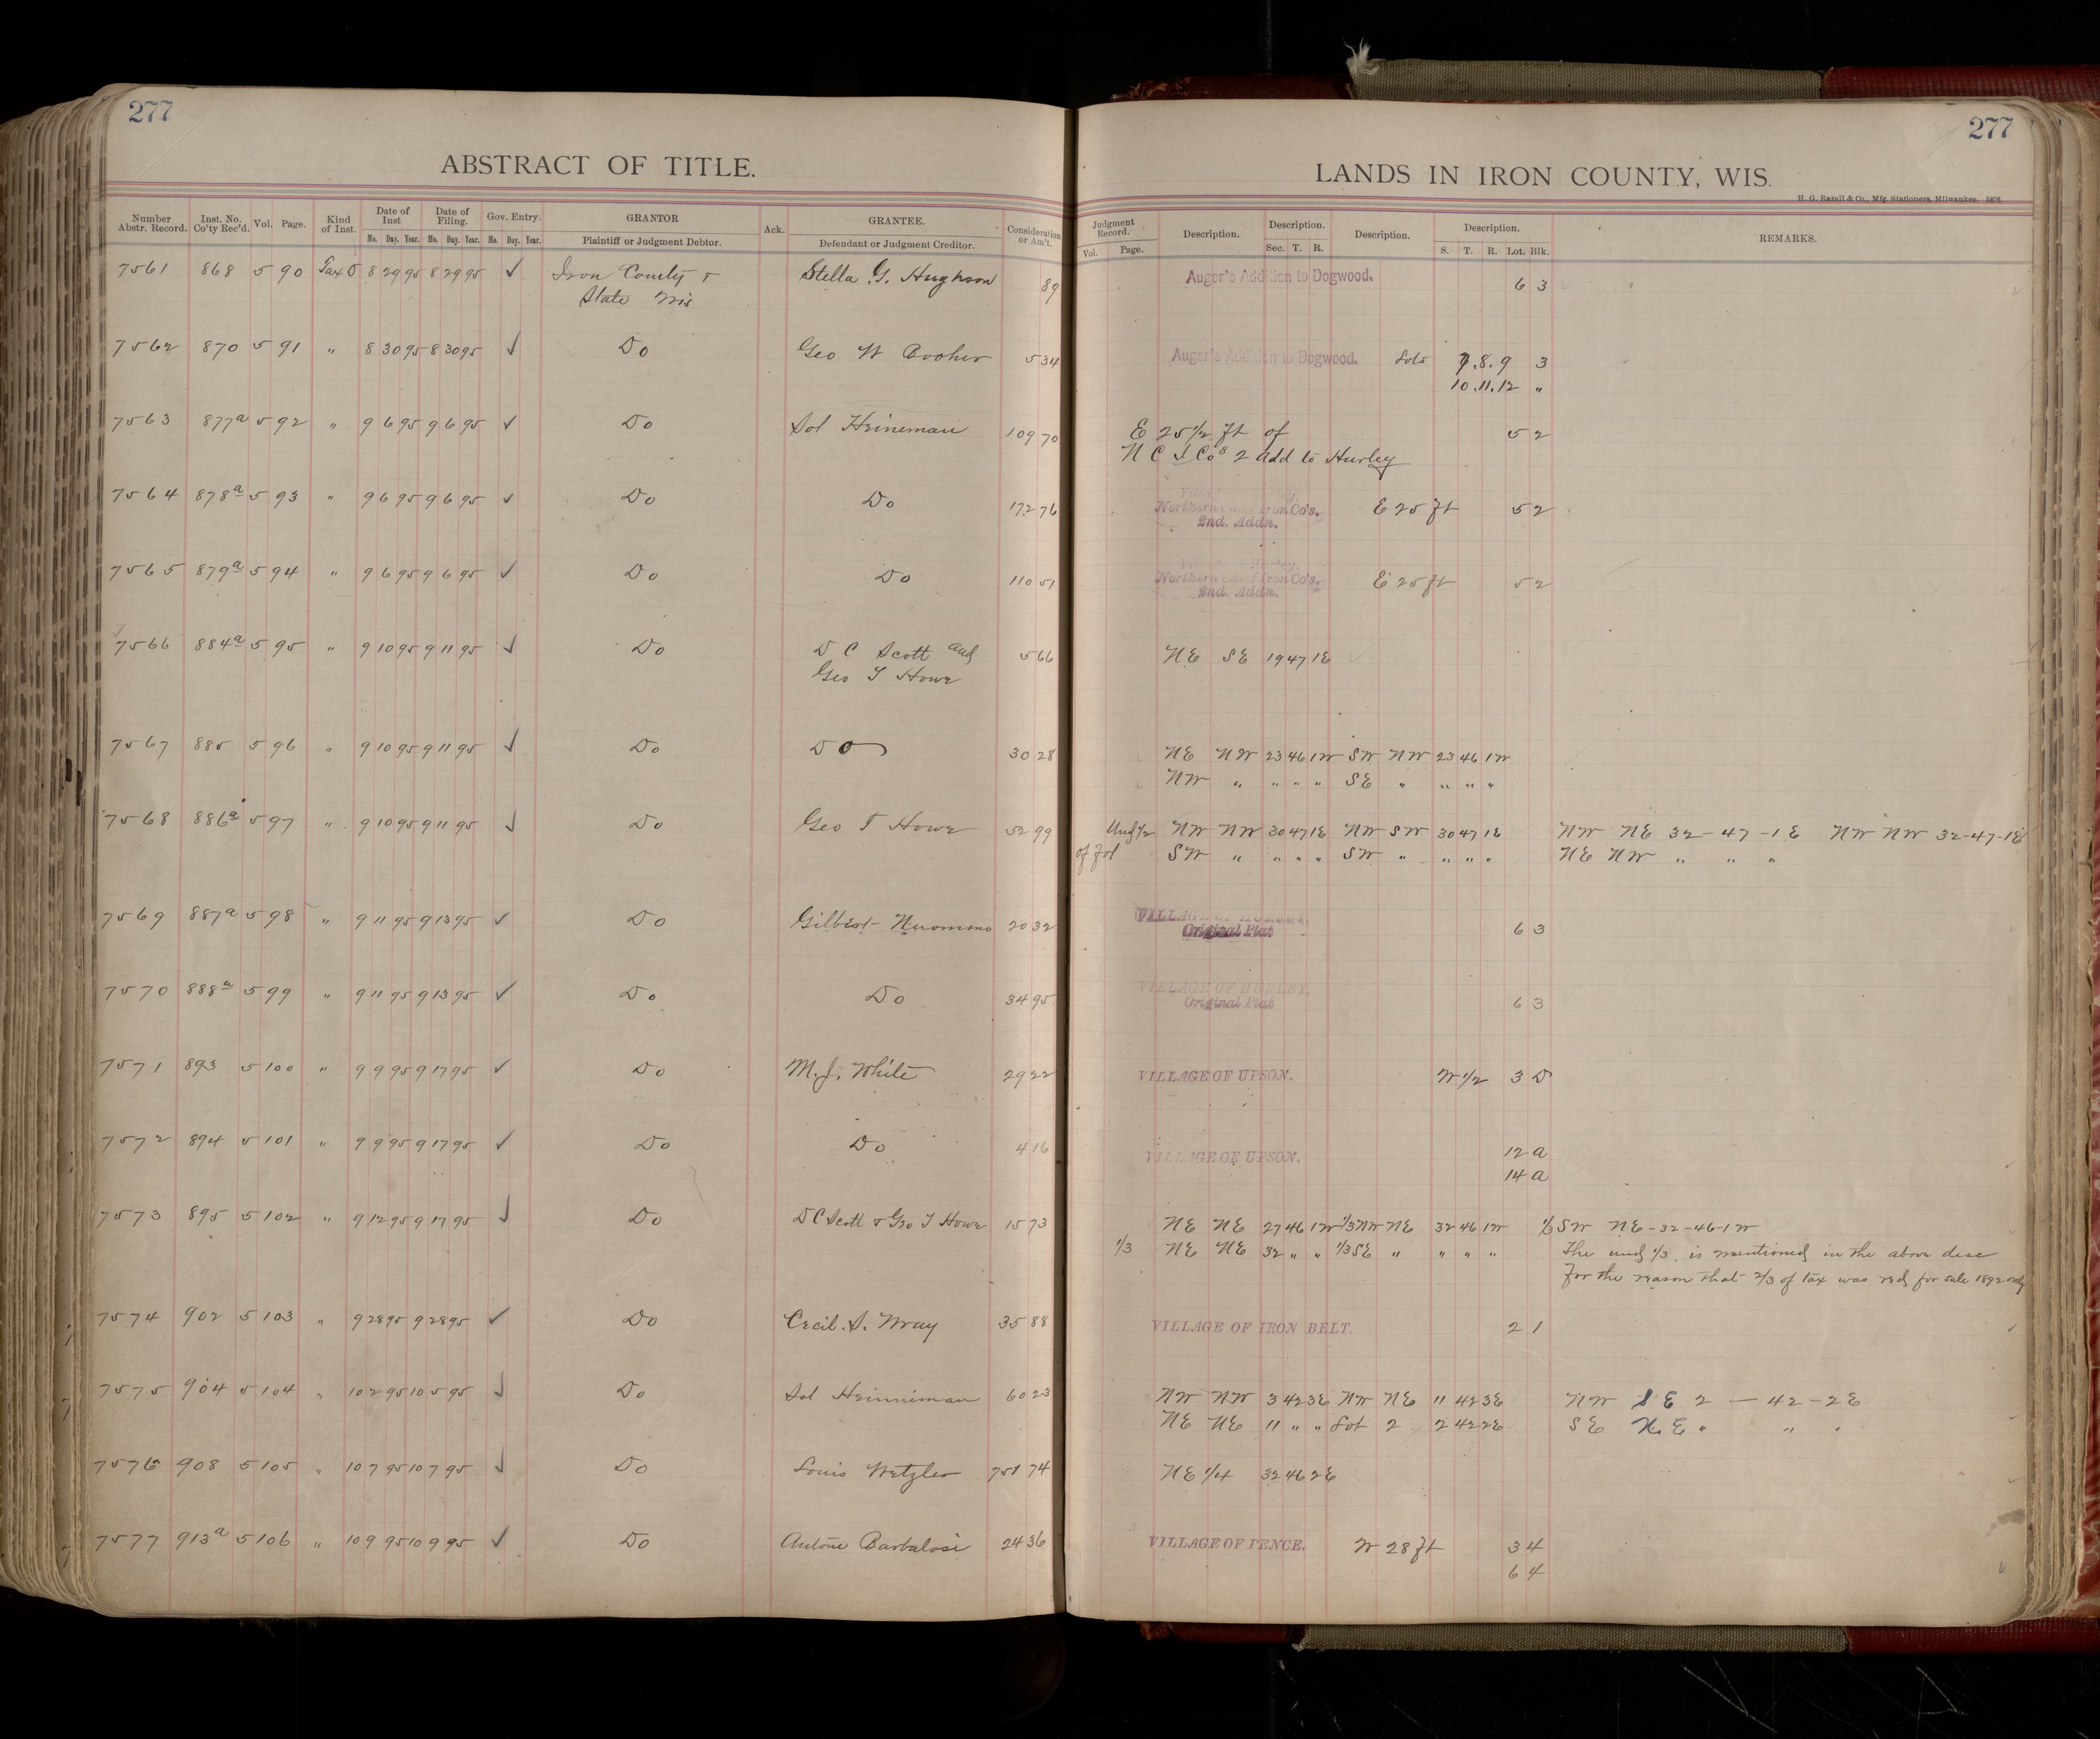 277
277
ABSTRACT OF TITLE.
LANDS IN IRON COUNTY, WIS.
H. G. Razall & Co., Mfg. Stationers, Milwaukee. 5876.
Number Abstr. Record. Inst. No. Co'ty Rec'd. Vol. Page. Kind of Inst. Date of Inst Mo. Day. Year. Date of Filing. Mo. Day. Year. Gov. Entry. Mo. Day. Year. GRANTOR Plaintiff or Judgment Debtor. Ack. GRANTEE. Defendant or Judgment Creditor. Consideration or Am't.
Judgment Record. Vol. Page. Description. Description. Sec. T. R. Description. Description. S. T. R. Lot. Blk. REMARKS.
7561 868 5 90 Tax D 8 29 95 8 29 95 ✓ Iron County & Stella G. Hughson 89 Auger's Addition to Dogwood. 6 3
State Wis
7562 870 5 91 " 8 30 95 8 30 95 ✓ Do Geo W Booher 5 34 Auger's Addition to Dogwood. Lots 7.8.9 3
10.11.12 "
7563 877a 5 92 " 9 6 95 9 6 95 ✓ Do Sol Heineman 109 70 E 25 1/2 ft of 5 2
N C I Co's 2 add to Hurley
7564 878a 5 93 " 9 6 95 9 6 95 ✓ Do Do 172 76 Northern Chief Iron Co's. E 25 ft 5 2
2nd. Addn.
7565 879a 5 94 " 9 6 95 9 6 95 ✓ Do Do 110 51 Northern Chief Iron Co's. E 25 ft 5 2
2nd. Addn.
7566 884a 5 95 " 9 10 95 9 11 95 ✓ Do D C Scott and 5 66 NE SE 19 47 1E
Geo T Howe
7567 885 5 96 " 9 10 95 9 11 95 ✓ Do Do 30 28 NE NW 23 46 1W SW NW 23 46 1W
NW " " " " SE " " " "
7568 886a 5 97 " 9 10 95 9 11 95 ✓ Do Geo T Howe 52 99 Und 1/2 NW NW 30 47 1E NW SW 30 47 1E NW NE 32-47-1E NW NW 32-47-1E
of fol SW " " " " SW " " " " NE NW " " "
7569 887a 5 98 " 9 11 95 9 13 95 ✓ Do Gilbert Nuommo 20 32 VILLAGE OF HURLEY. 6 3
Original Plat
7570 888a 5 99 " 9 11 95 9 13 95 ✓ Do Do 34 95 VILLAGE OF HURLEY. 6 3
Original Plat
7571 893 5 100 " 9 9 95 9 17 95 ✓ Do M. J. White 29 22 VILLAGE OF UPSON. W 1/2 3 D
7572 894 5 101 " 9 9 95 9 17 95 ✓ Do Do 4 16 VILLAGE OF UPSON. 12 a
14 a
7573 895 5 102 " 9 12 95 9 17 95 ✓ Do D C Scott & Geo T Howe 15 73 NE NE 27 46 1W 1/3 NW NE 32 46 1W 1/3 SW NE-32-46-1W
1/3 NE NE 32 " " 1/3 SE " " " " The und 1/3 is mentioned in the above desc
for the reason that 2/3 of tax was red for sale 1892 only
7574 902 5 103 " 9 28 95 9 28 95 ✓ Do Cecil. S. Wray 35 88 VILLAGE OF IRON BELT. 2 1
7575 904 5 104 " 10 2 95 10 5 95 ✓ Do Sol Heinniman 60 23 NW NW 3 42 3E NW NE 11 42 3E NW SE 2 — 42 - 2E
NE NE 11 " " Lot 2 2 42 2E SE N.E " " "
7576 908 5 105 " 10 7 95 10 7 95 ✓ Do Louis Wetzler 751 74 NE 1/4 32 46 2E
7577 913a 5 106 " 10 9 95 10 9 95 ✓ Do Antone Barbalosi 24 36 VILLAGE OF PENCE. W 28 ft 3 4
6 4